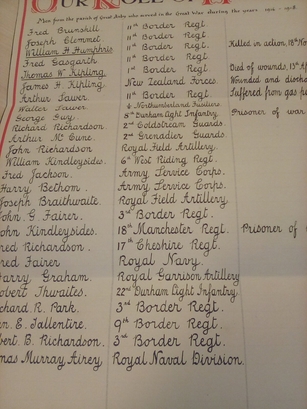 OUR ROLL OF
Men from the parish of Great Asby who served in the Great War during the years 1914 - 1918
Fred Brunskill 11th Border Regt
Joseph Climmet 11th Border Regt.
William H Humphris 11th Border Regt Killed in action, 18th
Fred Gasgarth 11th Border Regt
Thomas W. Kipling 1st Border Regt Died of wounds, 13th
James H. Kipling New Zealand Forces Wounded and
Arthur Sawer 11th Border Regt Suffered from gas
Walter Sawer 4 Northumberland Fusiliers
George Guy 5th Durham Light Infantry Prisoner of war
Richard Richardson 2nd Coldstream Guards
Arthur Mc Cune 2nd Grenadier Guards
John Richardson Royal Field Artillery
William Kindleysides. 6th West Riding Regt
Fred Jackson Army Service Corps.
Harry Bethom. Army Service Corps.
oseph Braithwaite Royal Field Artillery
ohn G. Fairer. 3rd Border Regt.
ohn Kindleysides. 18th Manchester Regt. Prisoner of
red Richardson. 17th Cheshire Regt.
red Fairer Royal Navy.
arry Graham Royal Garrison Artillery
obert Thwaites. 22nd Durham Light Infantry.
chard R. Park 3rd Border Regt.
E. Tallentire. 9th Border Regt.
bert E. Richardson. 3rd Border Regt.
mas Murray Airey, Royal Naval Division.